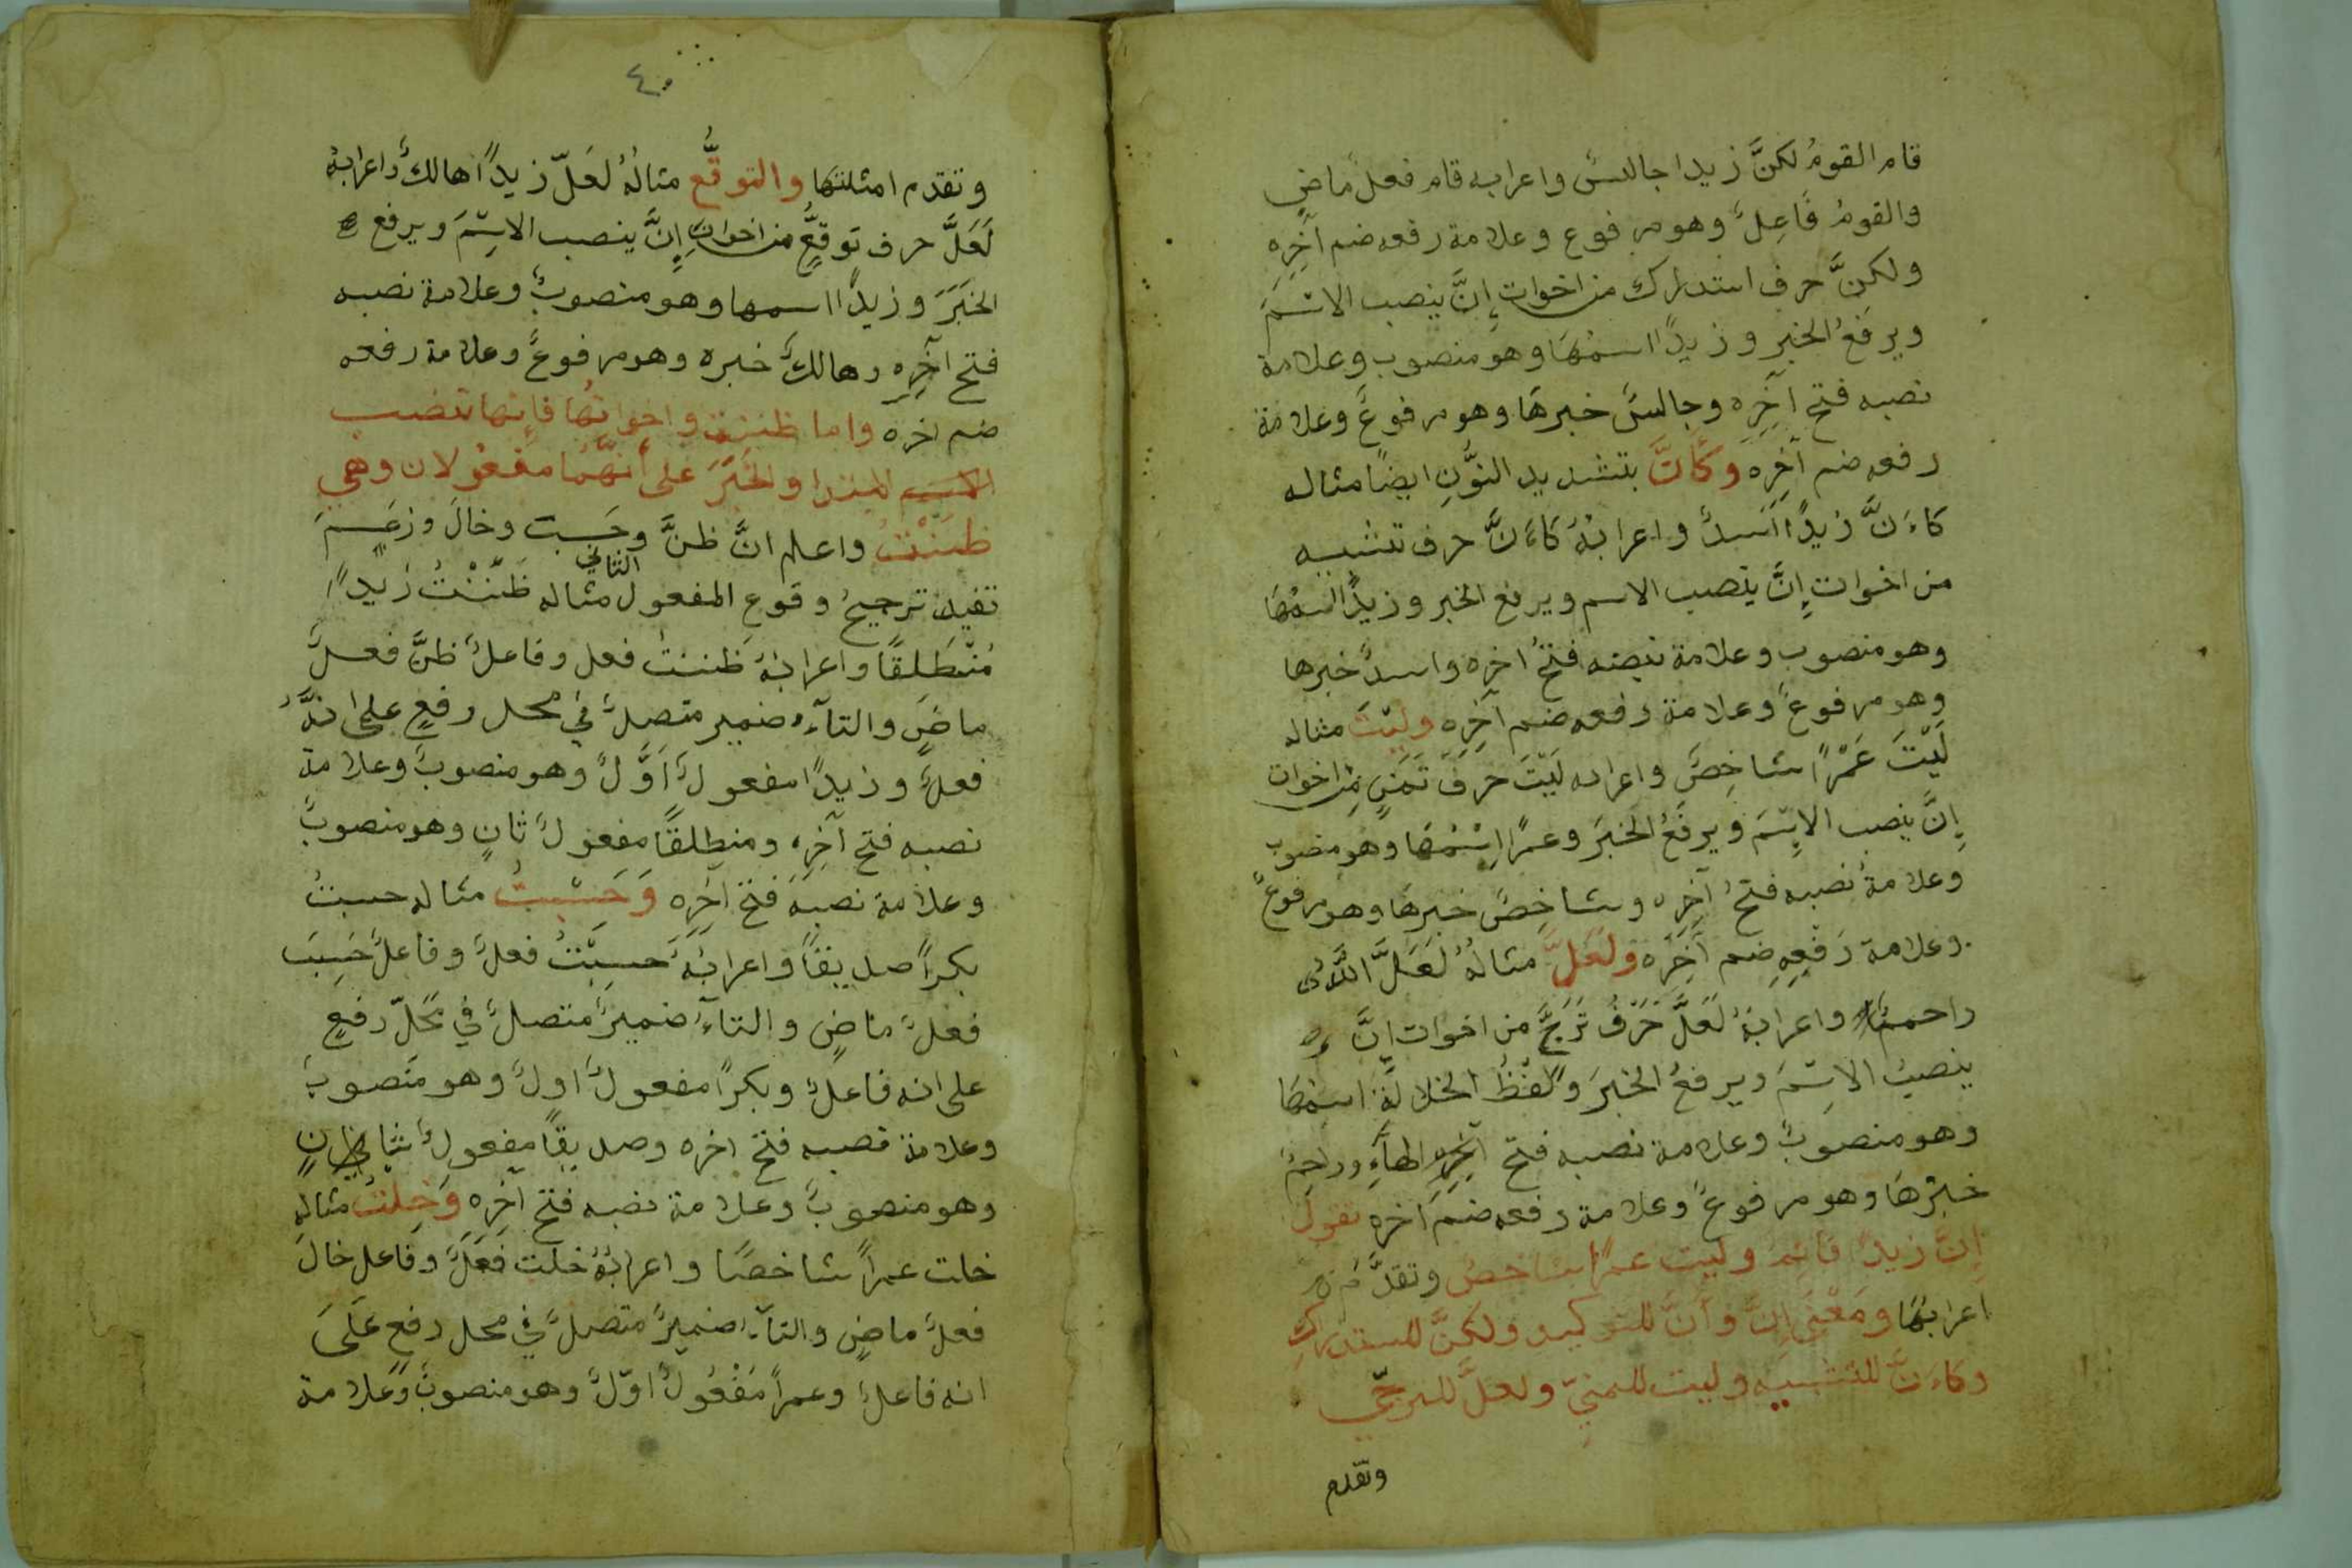 قام القومُ لكنَّ زيدا جالسٌ واعرابه قام فعلٌ ماضٍ
والقومُ فَاعِلٌ وهو مرفوع وعلامة رفعه ضم آخِرِه
ولكنَّ حرف استدراك من اخوات إنَّ ينصب الاسْمَ
ويرفعُ الخبر وزيدًا اسمُهَا وهو منصوب وعلامة
نصبه فتح آخِرِه وجالسٌ خبرهَا وهو مرفوعٌ وعلامة
رفعه ضم آخِرِه وكَأنَّ بتشديد النُّونِ ايضًا مثاله
كَاءَنَّ زيدًا اَسَدٌ واعرابُهُ كَاءَنَّ حرف تشبيه
من اخوات إنَّ ينصب الاسم ويرفع الخبر وزيدًا اسمُهَا
وهو منصوب وعلامة نصبه فتحُ اخره واسدٌ خبرها
وهو مرفوعٌ وعلامة رفعه ضم آخِرِه ولَيْتَ مثاله
لَيْتَ عَمْرًا شاخِصٌ واعرابه لَيْتَ حرف تَمَنٍ مِن اخوات
إنَّ ينصب الاِسْمَ ويرفَعُ الخبرَ وعمرًا اِسْمُهَا وهو منصوب
وعلامةُ نصبه فتحُ آخِرِه وشاخِصٌ خبرهَا وهو مرفوعٌ
وعلامة رَفْعِهِ ضم آخِرِه ولَعَلَّ مثالُهُ لَعَلَّ اللَّهَ
راحمنا واعرابُهُ لَعَلَّ حَرْفُ تَرَجٍّ من اخوات إنَّ
ينصبُ الاسْمَ ويرفعُ الخبرَ ولَفْظُ الجلالَةِ اسمُهَا
وهو منصوبٌ وعلامة نصبه فتح آخِرِهِ الهآءِ وراحمُ
خبرُهَا وهو مرفوعٌ وعلامة رفعه ضم آخره تقول
إنَّ زيدًا قائِمٌ وليت عمرًا شاخصٌ وتقدَّمَ
اعرابُهَا ومَعْنَى إنَّ وأنَّ للتوكيد ولكنَّ للاستدراكِ
وكاءَنَّ للتشبيه وليت للتمنيّ ولعلَّ للترجّي
وتقدم
٤٠
وتقدم امثلتهَا والتوقُّع مثالُهُ لعَلّ زيدًا هالكٌ واعرابهُ
لَعَلَّ حرف تَوقعٍ من اخوات إنَّ ينصب الاسْمَ ويرفع
الخبَرَ وزيدًا اسمها وهو منصوبٌ وعلامة نصبه
فتح آخِرِه وهالكٌ خبره وهو مرفوعٌ وعلامة رفعه
ضم اخره واما ظننت واخواتُهَا فإنها تنصب
الاسم المبتدا والخَبَرَ على أنَّهُمَا مفعُولان وهي
ظَنَنْتُ واعلم انَّ ظنَّ وحَسِبت وخالَ وزعَمَ
تفيد ترجيحُ وقوع المفعول الثاني مثاله ظَنَنْتُ زيدًا
مُنْطَلقًا واعرابهُ ظننتُ فعل وفاعلٌ ظنَّ فعلٌ
ماضٍ والتآءُ ضمير متصلٌ في محل رفعٍ على انهُ
فعلٌ وزيدًا مفعولٌ اَوَّلٌ وهو منصوبٌ وعلامة
نصبه فتح آخِرِهِ ومنطلقًا مفعولٌ ثانٍ وهو منصوبٌ
وعلامة نصبه فتح آخِرِه وَحَسِبْتُ مثاله حسبتُ
بكرًا صديقًا واعرابُهُ حَسِبْتُ فعلٌ وفاعلٌ حَسِبَ
فعلٌ ماضٍ والتاءُ ضميرٌ متصلٌ في مَحَلّ رفعٍ
على انه فاعلٌ وبكرًا مفعولٌ اولٌ وهو منصوبٌ
وعلامة نصبه فتح اخره وصديقًا مفعولٌ ثانٍ
وهو منصوبٌ وعلامة نصبه فتح آخِرِه وَخِلتُ مثاله
خلت عمرًا شاخصًا واعرابُهُ خلت فِعلٌ وفاعل خالَ
فعلٌ ماضٍ والتآءُ ضميرٌ متصلٌ في محل رفعٍ عَلَى
انه فاعلٌ وعمرًا مَفْعُولٌ اوّلٌ وهو منصوبٌ وعلامة